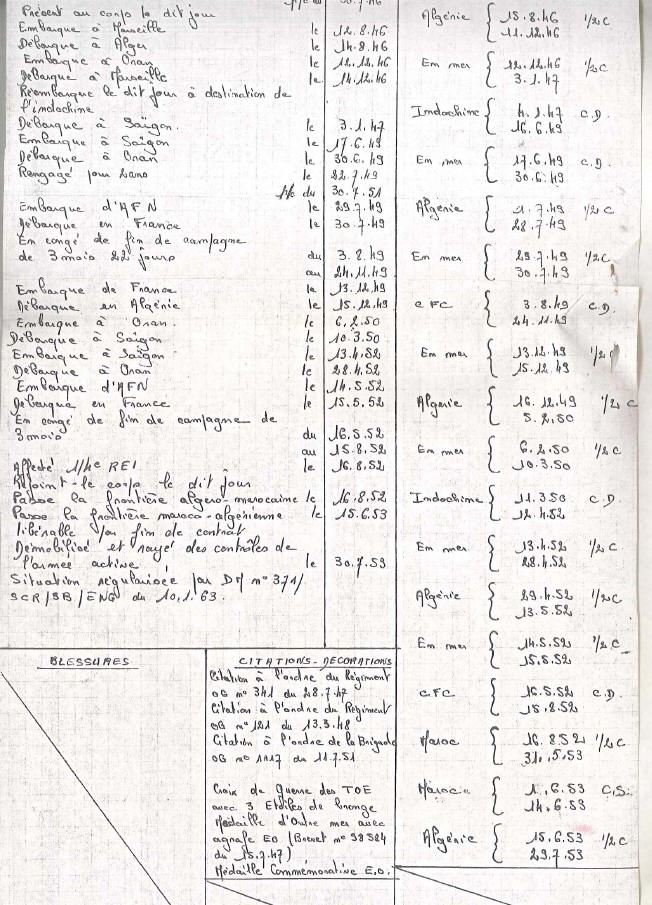 Présent au corps le dit jour
Embarque à Marseille le 12.8.46
Débarque à Alger le 14.8.46
Embarque à Oran le 12.12.46
Débarque à Marseille le 14.12.46
Réembarque le dit jour à destination de
l'indochine
Débarque à Saïgon. le 3.1.47
Embarque à Saïgon le 17.6.49
Débarque à Oran le 30.6.49
Rengagé pour 2ans le 22.7.49
p/c du 30.7.51
Embarque d'AFN le 29.7.49
Débarque en France le 30.7.49
En congé de fin de campagne
de 3 mois 22 jours du 3.8.49
au 24.11.49
Embarque de France le 13.12.49
Débarque en Algérie le 15.12.49
Embarque à Oran. le 6.2.50
Débarque à Saïgon le 10.3.50
Embarque à Saïgon le 13.4.52
Débarque à Oran le 28.4.52
Embarque d'AFN le 14.5.52
Débarque en France le 15.5.52
En congé de fin de campagne de
3 mois du 16.5.52
au 15.8.52
Affecté 1/4e REI le 16.8.52
Rejoint le corps le dit jour
Passe la frontière algero-marocaine le 16.8.52
Passe la frontière maroco-algérienne le 15.6.53
libérable par fin de contrat
Démobilisé et rayé des contrôles de
l'armée active le 30.7.53
Situation régularisée par DM n° 371/
SCR/SB/ENG du 10.1.63.
Algérie { 15.8.46 1/2 C
11.12.46
Em mer { 12.12.46 1/2 C
3.1.47
Indochine { 4.1.47 C.D.
16.6.49
Em mer { 17.6.49 C.D.
30.6.49
Algérie { 1.7.49 1/2 C
28.7.49
Em mer { 29.7.49 1/2 C
30.7.49
CFC { 3.8.49 C.D.
24.11.49
Em mer { 13.12.49 1/2 C
15.12.49
Algérie { 16.12.49 1/2 C
5.2.50
Em mer { 6.2.50 1/2 C
10.3.50
Indochine { 11.3.50 C.D.
12.4.52
Em mer { 13.4.52 1/2 C
28.4.52
Algérie { 29.4.52 1/2 C
13.5.52
Em mer { 14.5.52 1/2 C
15.5.52
CFC { 16.5.52 C.D.
15.8.52
Maroc { 16.8.52 1/2 C
31.5.53
Maroc { 1.6.53 C.S.
14.6.53
Algérie { 15.6.53 1/2 C
29.7.53
BLESSURES
CITATIONS-DECORATIONS
Citation à l'ordre du Régiment
OG n° 341 du 28.7.47
Citation à l'ordre du Régiment
OG n° 121 du 13.3.48
Citation à l'ordre de la Brigade
OG n° 1117 du 11.7.51
Croix de guerre des TOE
avec 3 Etoiles de bronze
Médaille d'Outre mer avec
agrafe EO (Brevet n° 98584
du 15.7.47)
Médaille Commémorative E.O.